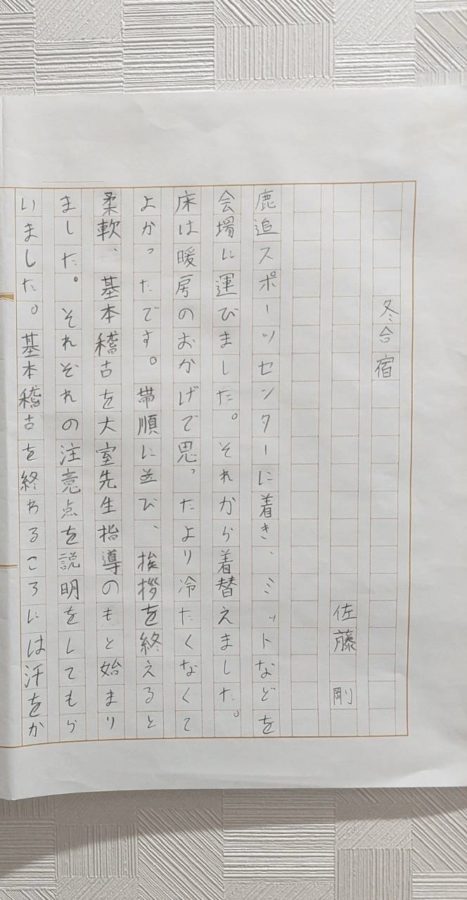 冬合宿
佐藤 剛
鹿追スポーツセンターに着き、ミットなどを
会場に運びました。それから着替えました。
床は暖房のおかげで思ったより冷たくなくて
よかったです。帯順に並び、挨拶を終えると
柔軟、基本稽古を大室先生指導のもと始まり
ました。それぞれの注意点を説明をしてもら
いました。基本稽古を終わるころには汗をか